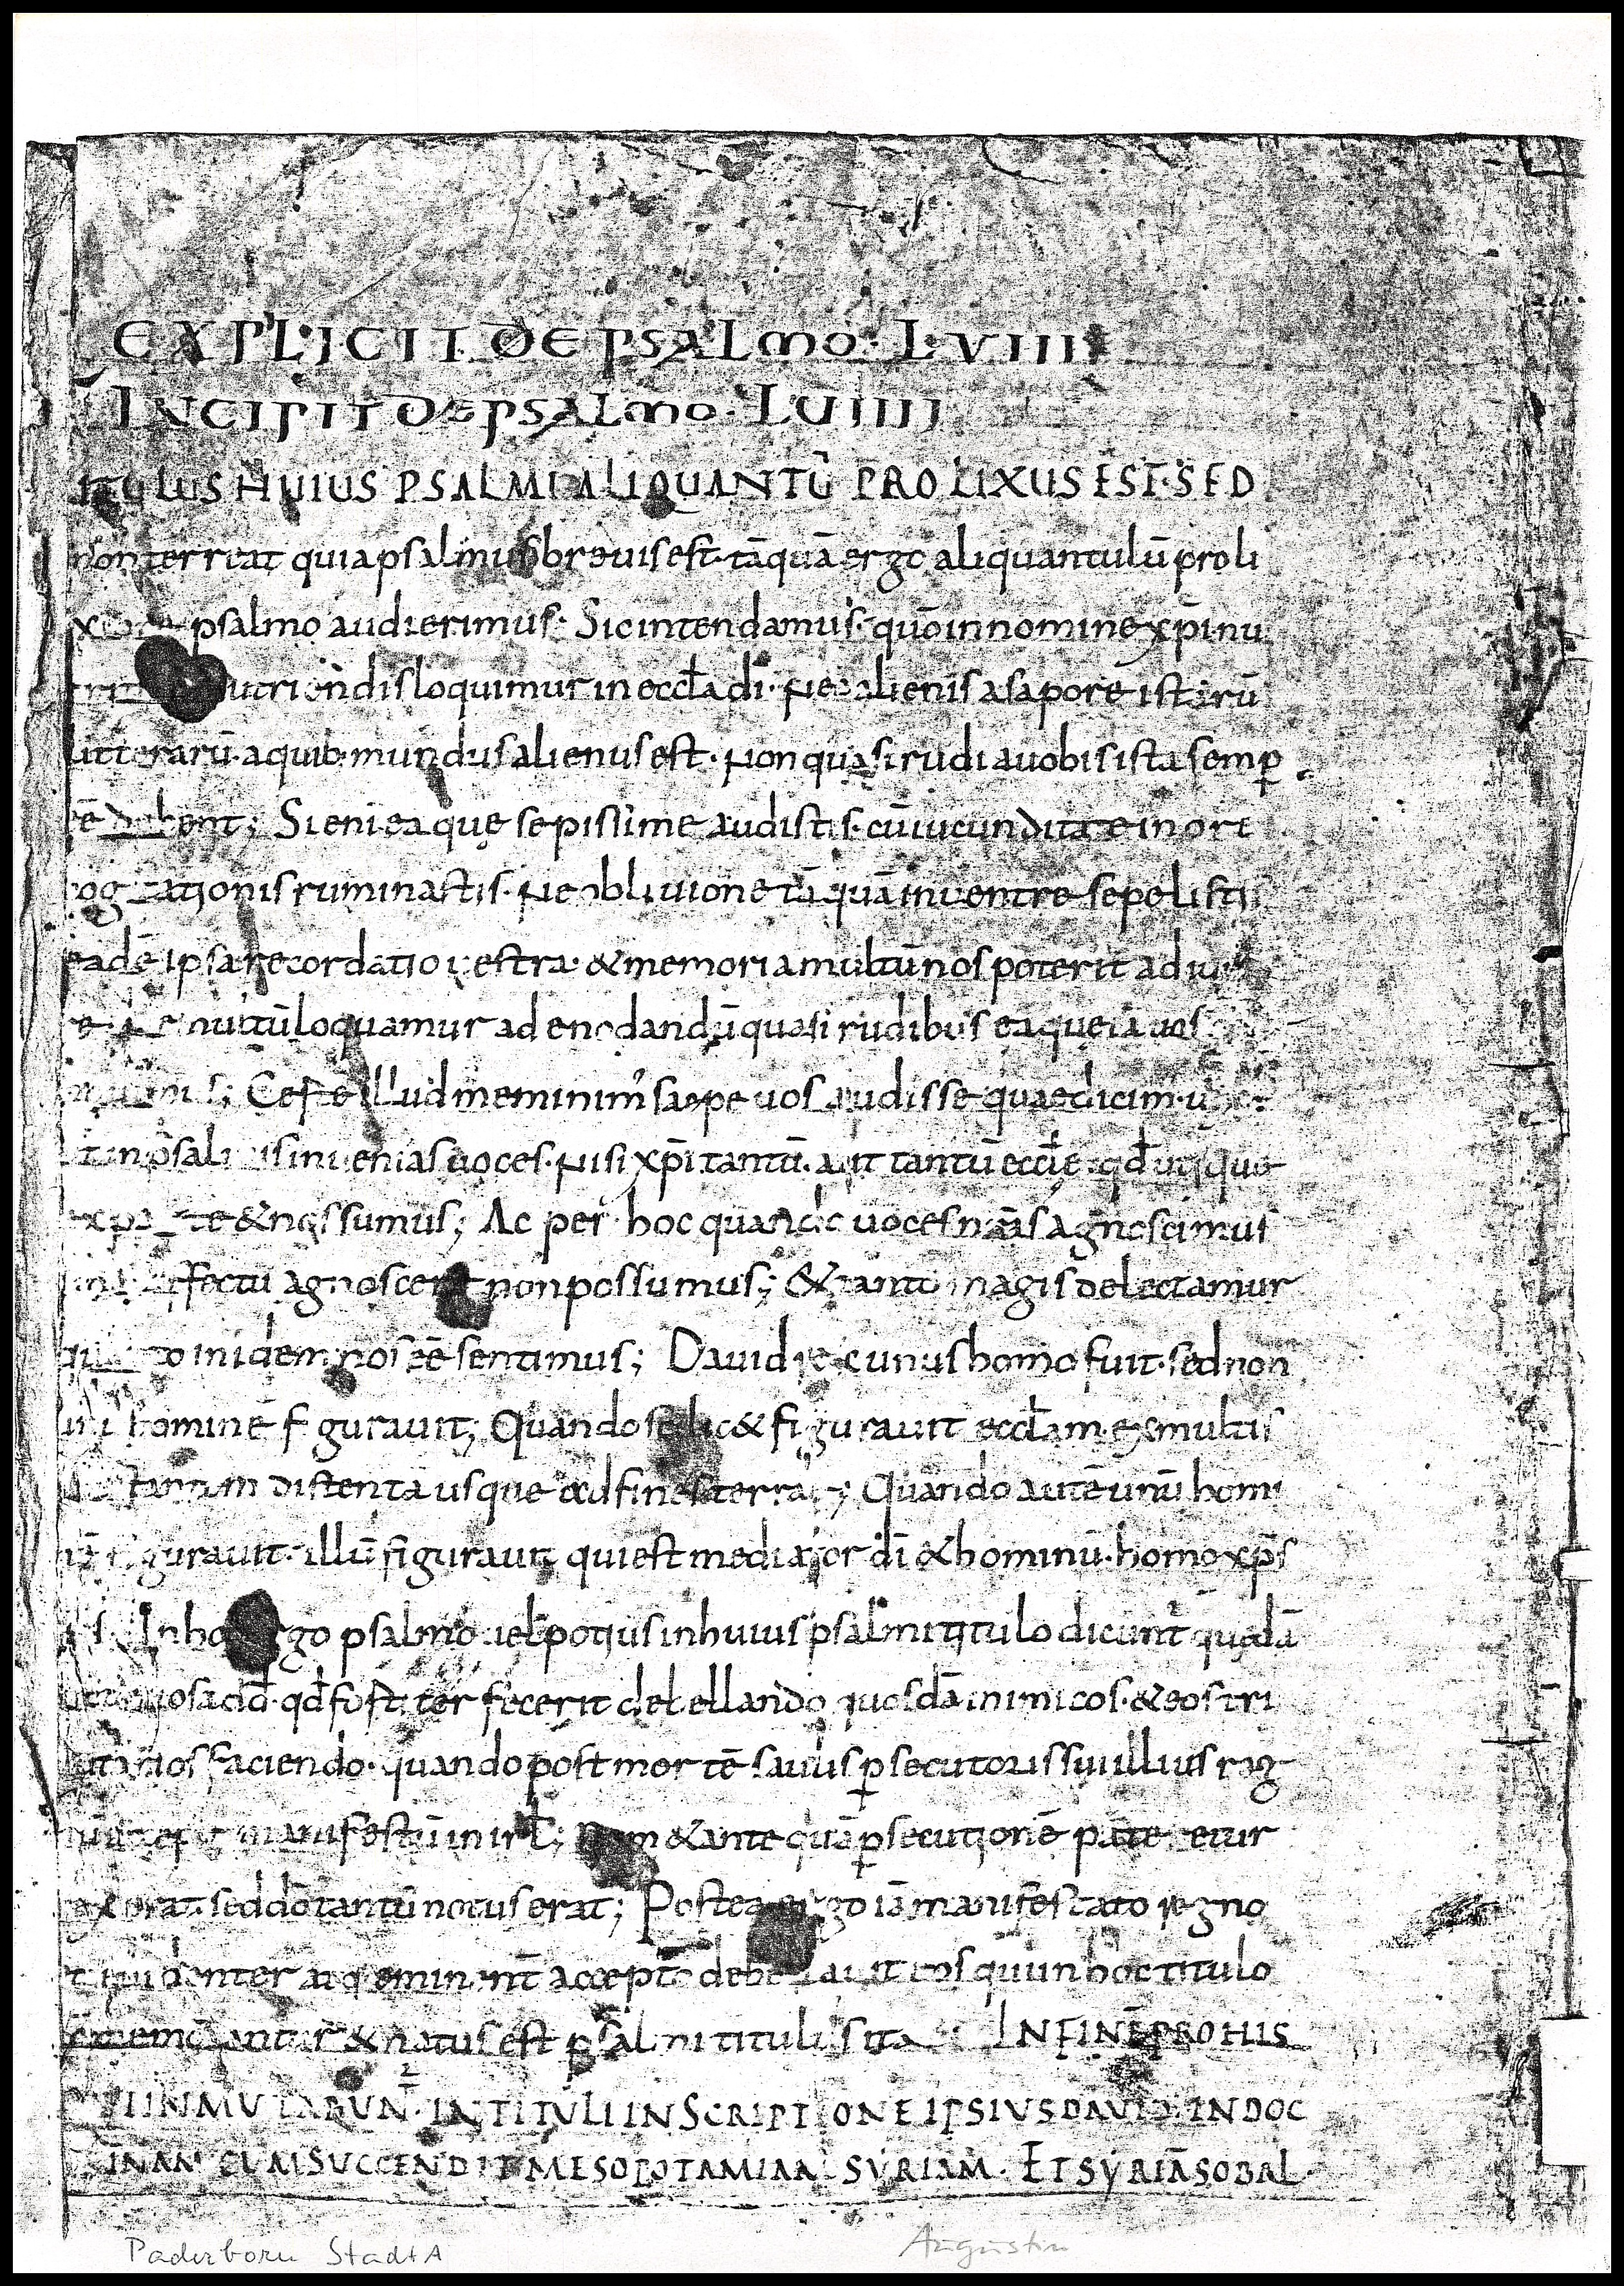 EXPLICIT DE PSALMO · LVIII
INCIPIT DE PSALMO · LVIIII
ITULUS HUIUS PSALMI ALIQUANTŪ PROLIXUS EST · SED
non terreat quia psalmus breuis est · tāquā ergo aliquantulū proli
psalmo audierimus · Sic intendamus · quō in nomine xp̄i nu
utriendis loquimur in eccła dī · Nec alienis a sapore istarū
litterarū · a quib· mundus alienus est · Non quasi rudia uobis ista semp
ēē debent ; Si eni ea quę sepissime audistis · cū iucunditate in ore
cogitationis ruminastis · Nec obliuione tāquā in uentre sepelistis
eadē ipsa recordatio uestra · & memoria multū nos poterit adiu
multū loquamur ad enodandū quasi rudibus ea que iā uos
Certe illud meminim' saepe uos audisse quae dicimus
psalmis inuenias uoces · Nisi xp̄i tantū · aut tantū eccłę · qđ utique
& nos sumus ; Ac per hoc quando uoces nrās agnoscimus
affectu agnoscere non possumus ; & tanto magis delectamur
in eidem nos ēē sentimus ; Dauid rex unus homo fuit · sed non
unū hominē figurauit ; Quando scilic& figurauit eccłam · ex multis
distenta usque ad fines terrae ; Quando autē unū homi
figurauit · illū figurauit qui est mediator dī & hominū · homo xp̄s
In hoc ergo psalmo uel potius in huius psalmi titulo dicunt quędā
qđ fortiter fecerit debellando quosdā inimicos · & eos tri
butarios faciendo · quando post mortē saulis psecutoris sui illius reg
manifestū in irł ; Nam & ante quā psecutionē pateretur
rex erat · sed dō tantū notus erat ; Postea ergo iā manifestato regno
euidenter atq eminent accepto debellauit eos qui in hoc titulo
cōmemorantur & notus est psalmi titulus ita · IN FINĒ PRO HIS
QUI INMUTABUNT · IN TITULI INSCRIPTIONE IPSIUS DAVID · IN DOC
INAM CUM SUCCENDIT MESOPOTAMIAM SYRIAM · ET SYRIĀ SOBAL·
Paderborn StadtA
Augustin